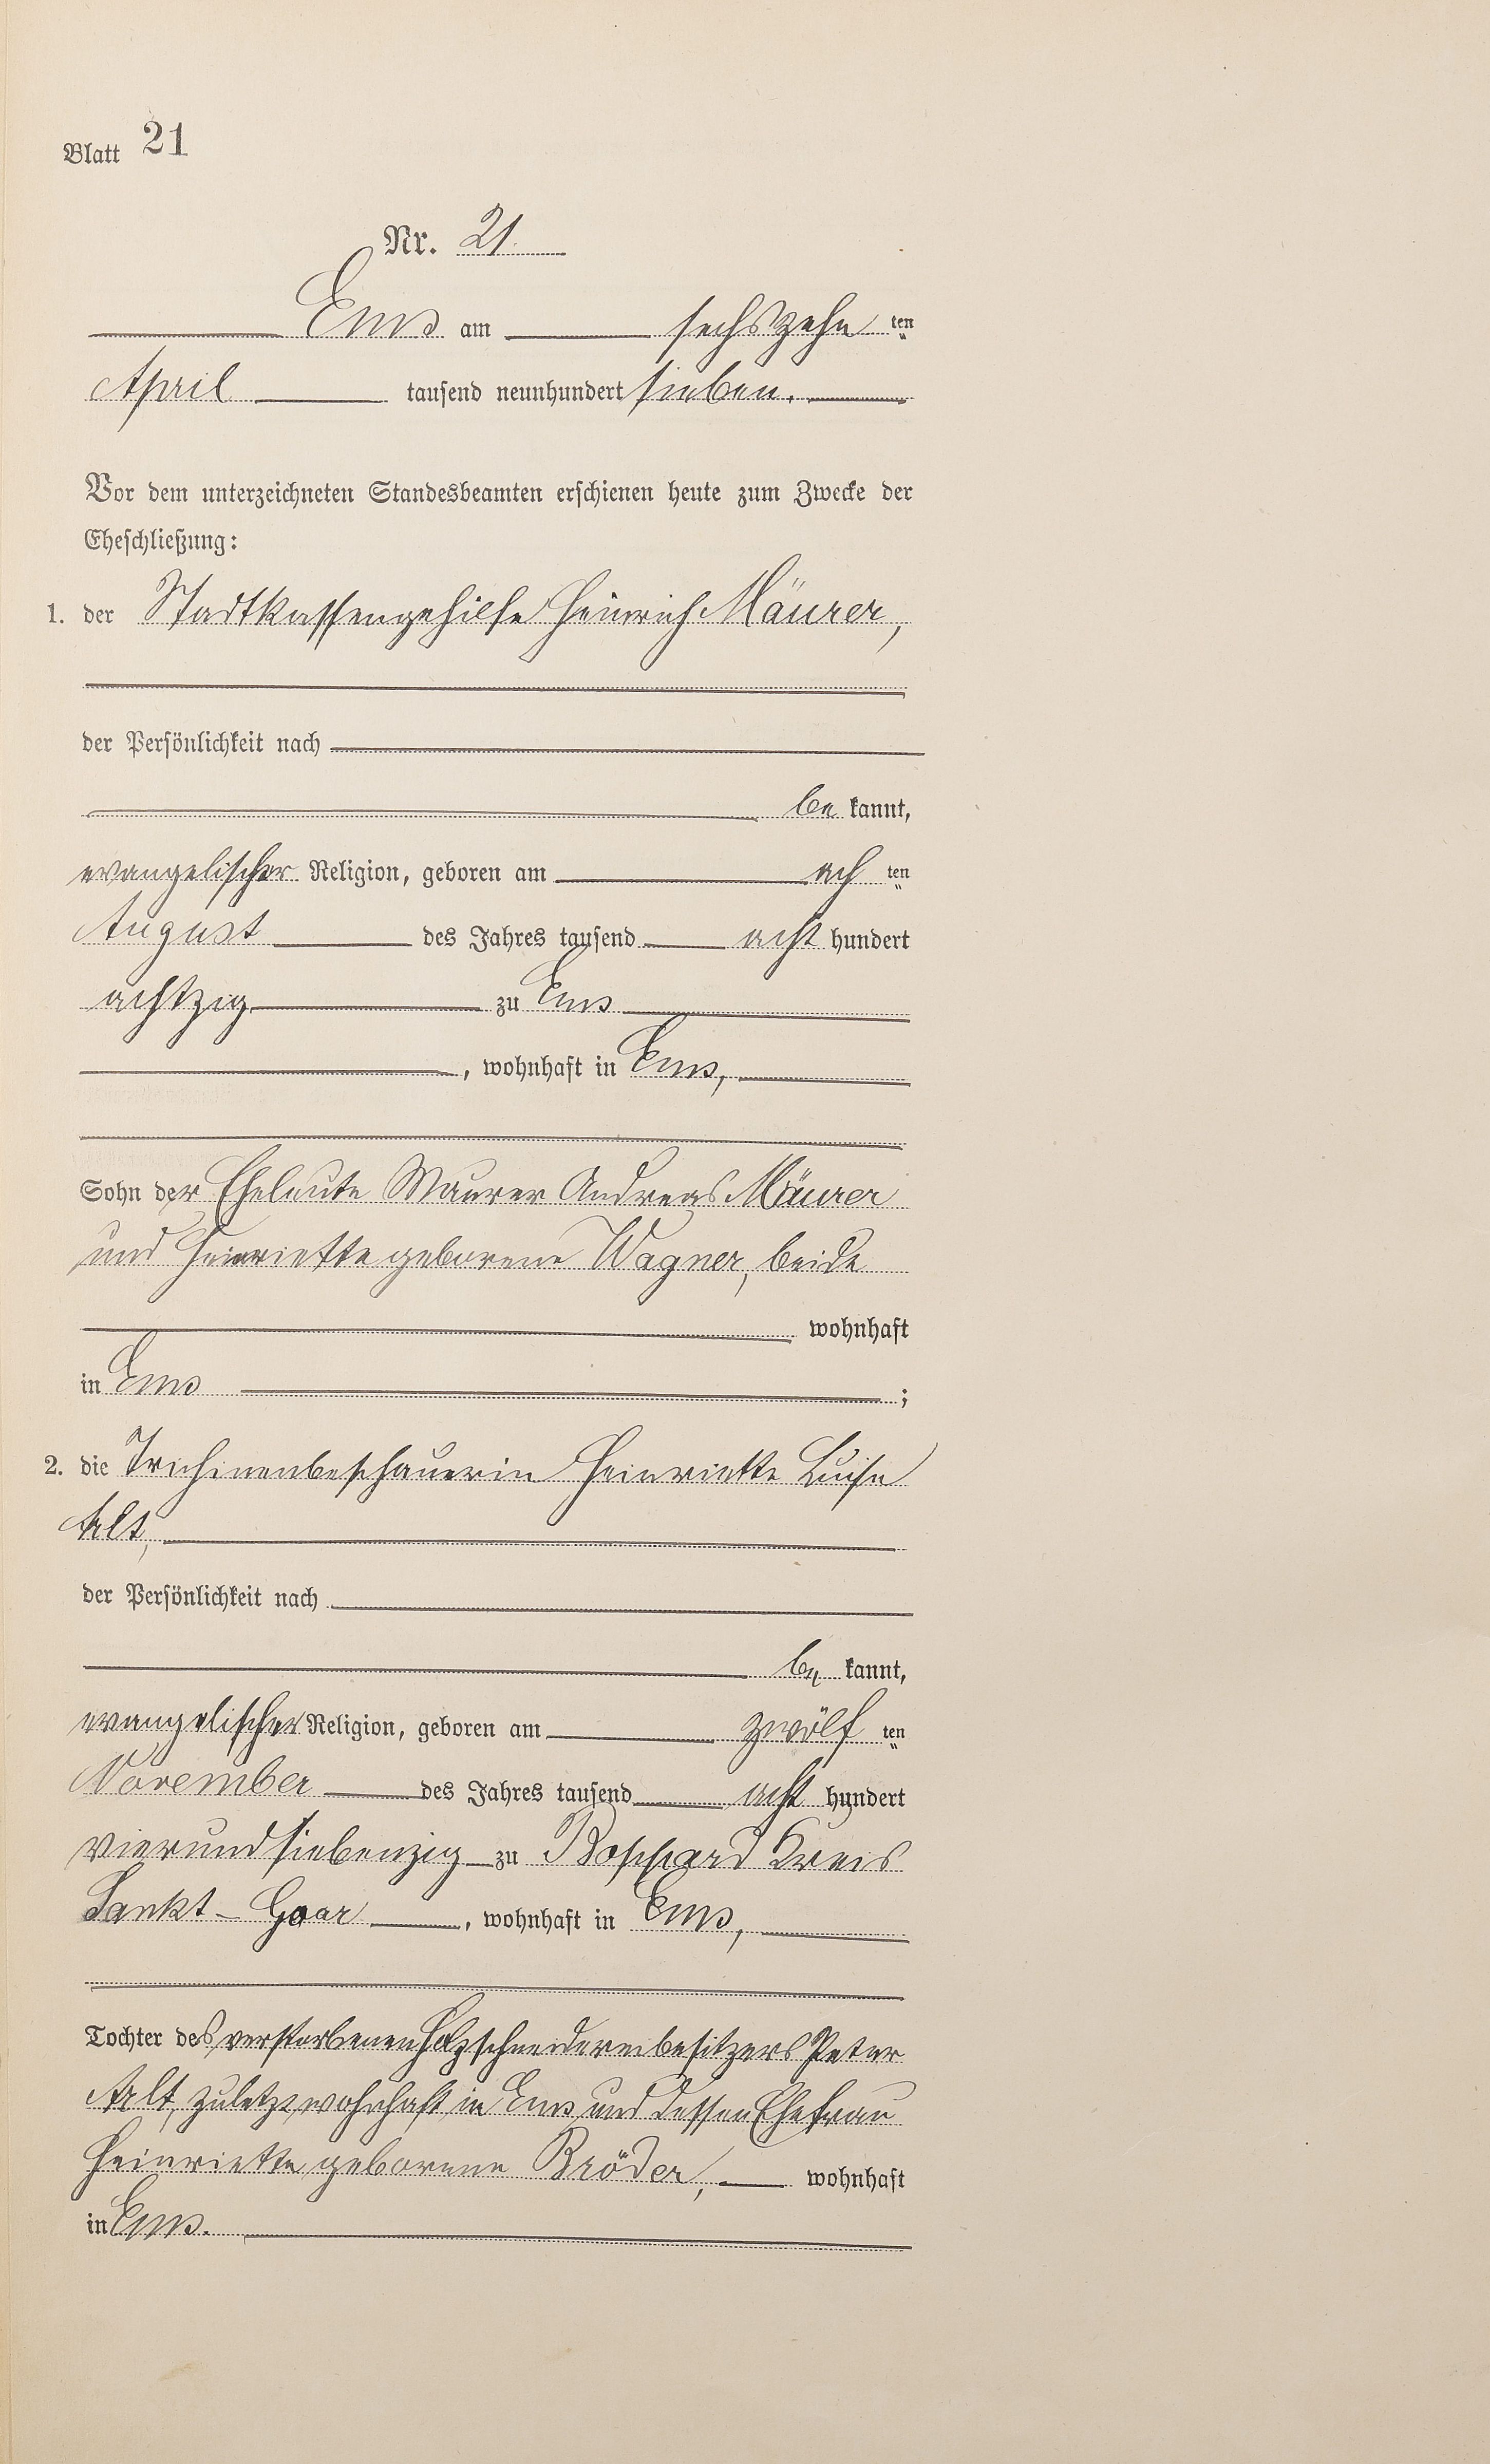 Blatt 21
Nr. 21.
Ems am sechszehn ten
April tausend neunhundert sieben.
Vor dem unterzeichneten Standesbeamten erschienen heute zum Zwecke der
Eheschließung:
1. der Stadtkassengehilfe Heinrich Mäurer,
der Persönlichkeit nach
be kannt,
evangelischer Religion, geboren am ach ten
August des Jahres tausend acht hundert
achtzig zu Ems
, wohnhaft in Ems,
Sohn der Eheleute Maurer Andreas Mäurer
und Henriette geborene Wagner, beide
wohnhaft
in Ems ;
2. die Trichinenbeschauerin Heinriette Luise
Alt,
der Persönlichkeit nach
be kannt,
evangelischer Religion, geboren am zwölf ten
November des Jahres tausend acht hundert
vierundsiebenzig zu Boppard Kreis
Sankt-Goar , wohnhaft in Ems,
Tochter des verstorbenen Holzschneidereibesitzers Peter
Alt, zuletzt wohnhaft in Ems und dessen Ehefrau
Heinriette geborene Bröder, wohnhaft
in Ems.